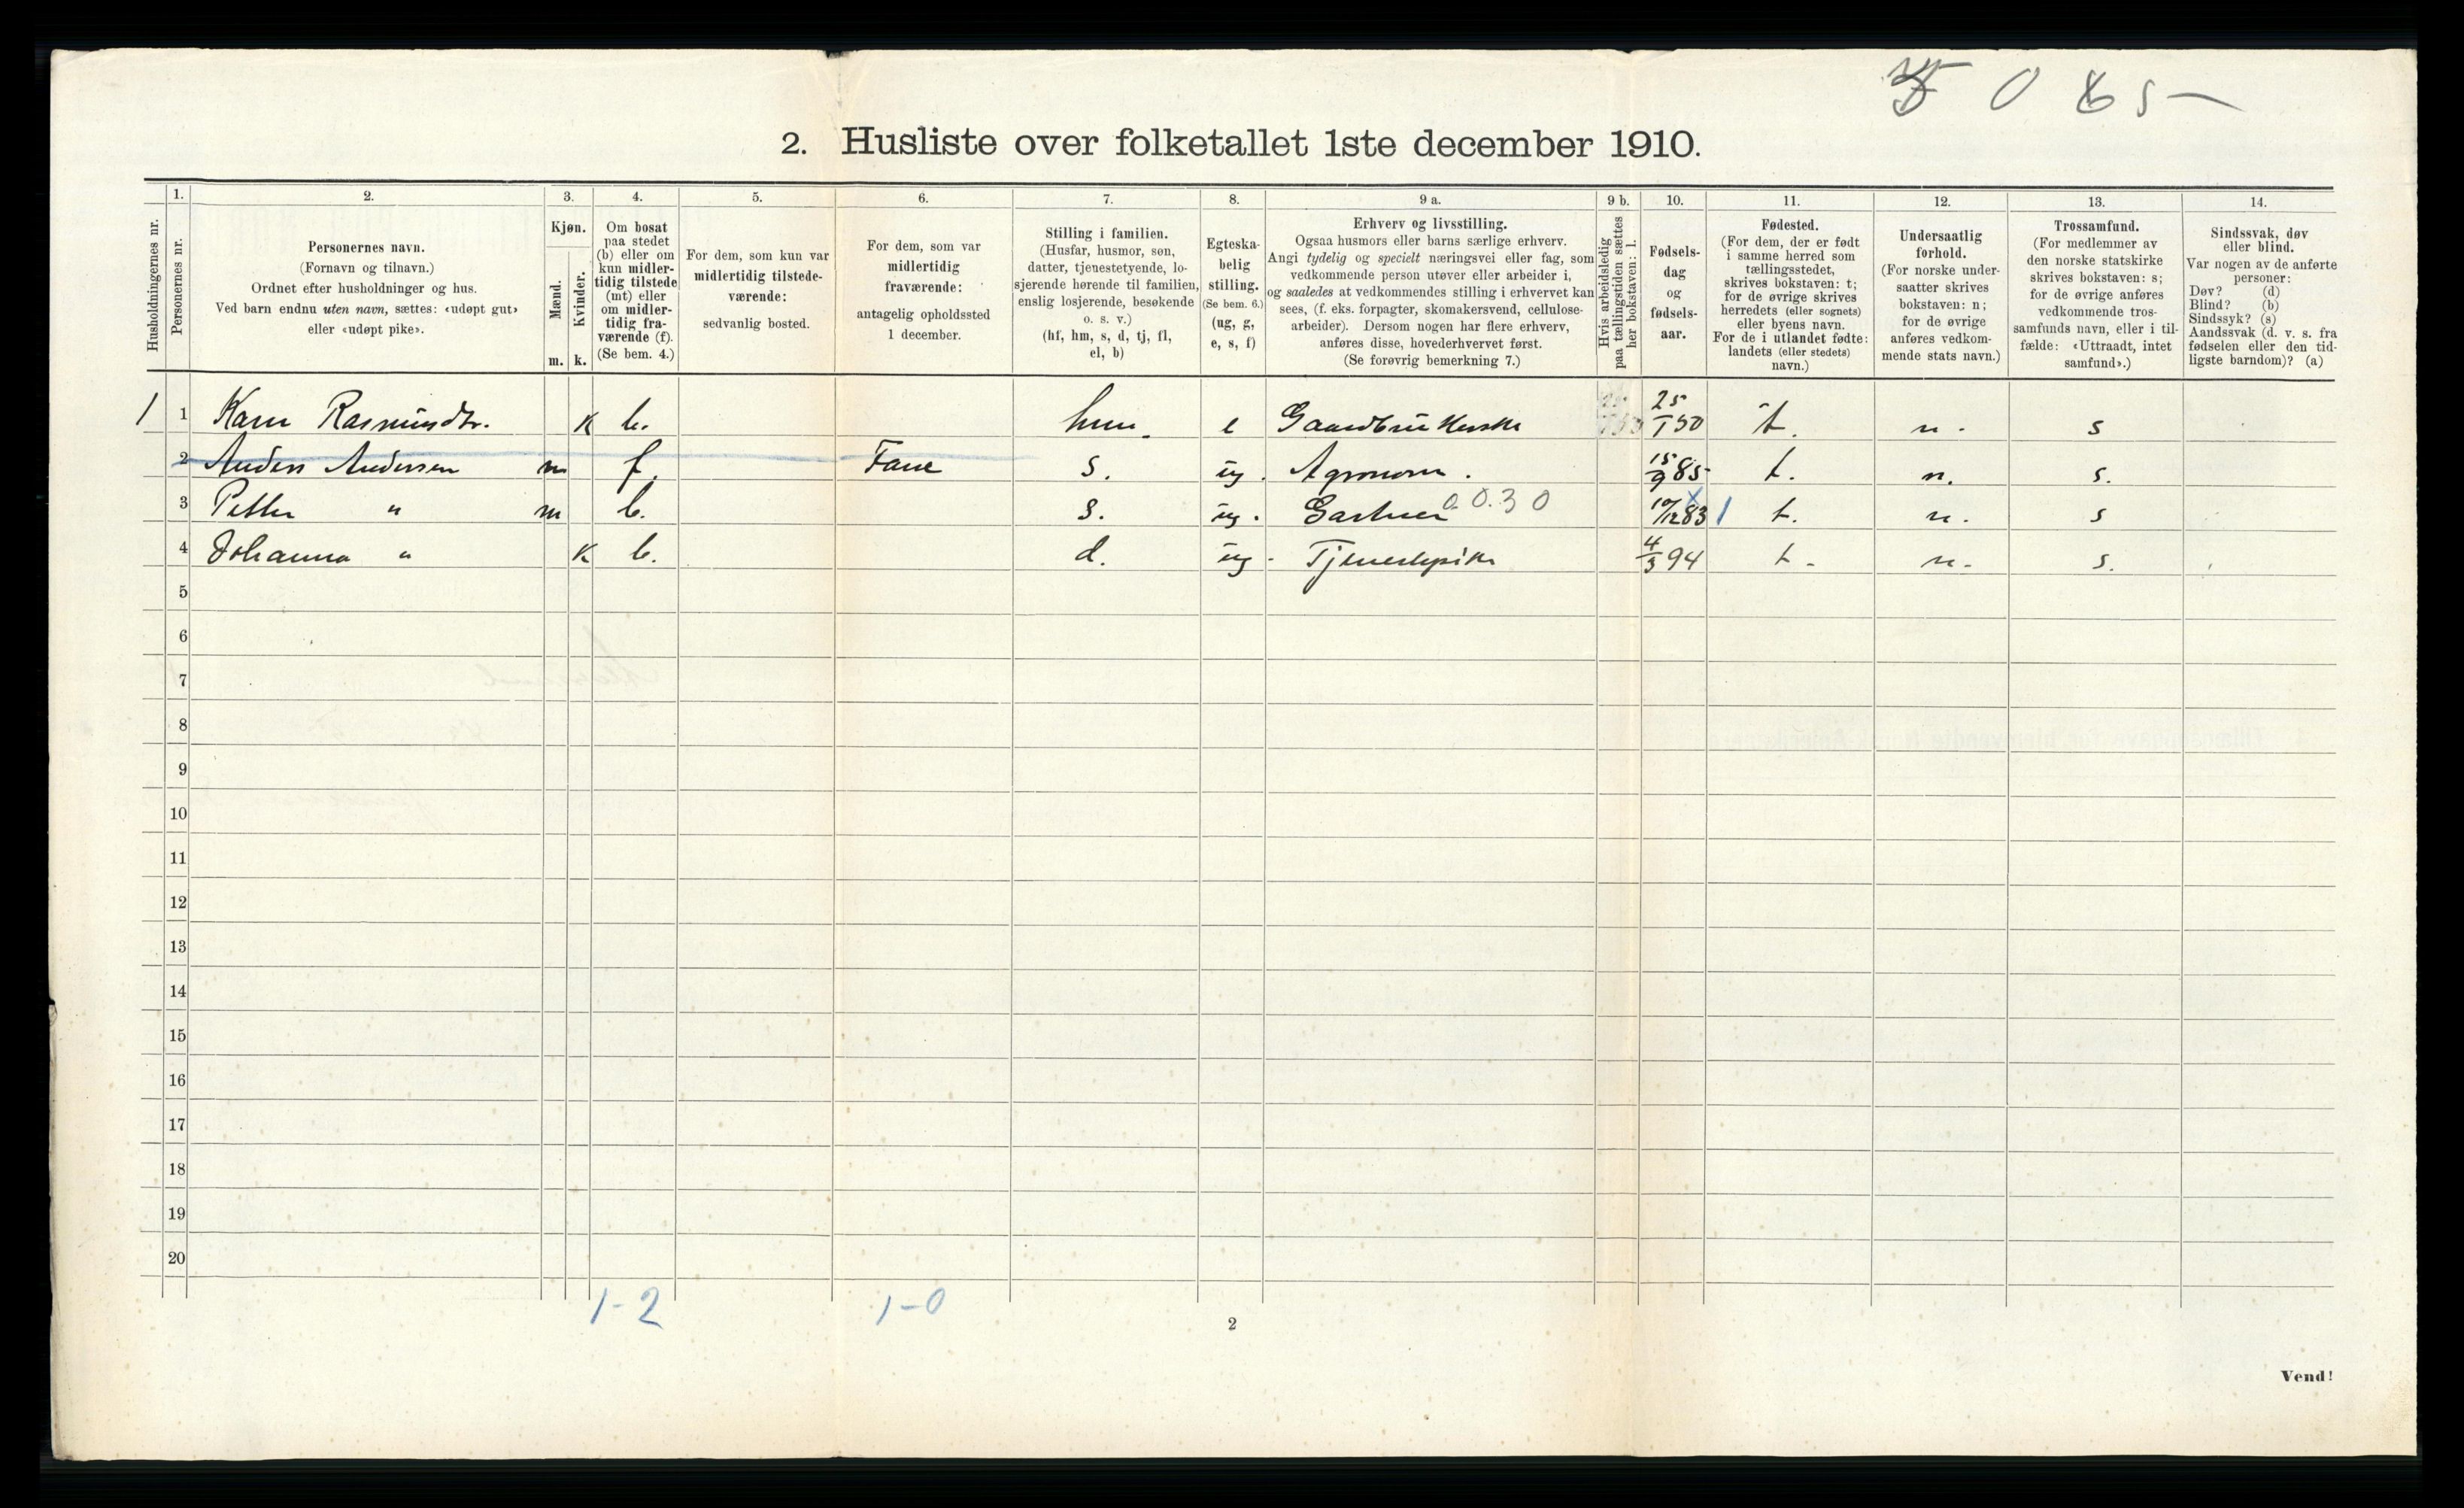 5 0 6 5 —
2. Husliste over folketallet 1ste december 1910.
1. 2. 3. 4. 5. 6. 7. 8. 9 a. 9 b. 10. 11. 12. 13. 14.
Husholdningernes nr.
Personernes nr.
Personernes navn.
(Fornavn og tilnavn.)
Ordnet efter husholdninger og hus.
Ved barn endnu uten navn, sættes: «udøpt gut»
eller «udøpt pike».
Kjøn.
Mænd.
Kvinder.
m. k.
Om bosat
paa stedet
(b) eller om
kun midler-
tidig tilstede
(mt) eller
om midler-
tidig fra-
værende (f).
(Se bem. 4.)
For dem, som kun var
midlertidig tilstede-
værende:
sedvanlig bosted.
For dem, som var
midlertidig
fraværende:
antagelig opholdssted
1 december.
Stilling i familien.
(Husfar, husmor, søn,
datter, tjenestetyende, lo-
sjerende hørende til familien,
enslig losjerende, besøkende
o. s. v.)
(hf, hm, s, d, tj, fl,
el, b)
Egteska-
belig
stilling.
(Se bem. 6.)
(ug, g,
e, s, f)
Erhverv og livsstilling.
Ogsaa husmors eller barns særlige erhverv.
Angi tydelig og specielt næringsvei eller fag, som
vedkommende person utøver eller arbeider i,
og saaledes at vedkommendes stilling i erhvervet kan
sees, (f. eks. forpagter, skomakersvend, cellulose-
arbeider). Dersom nogen har flere erhverv,
anføres disse, hovederhvervet først.
(Se forøvrig bemerkning 7.)
Hvis arbeidsledig
paa tællingstiden sættes
her bokstaven: l.
Fødsels-
dag
og
fødsels-
aar.
Fødested.
(For dem, der er født
i samme herred som
tællingsstedet,
skrives bokstaven: t;
for de øvrige skrives
herredets (eller sognets)
eller byens navn.
For de i utlandet fødte:
landets (eller stedets)
navn.)
Undersaatlig
forhold.
(For norske under-
saatter skrives
bokstaven: n;
for de øvrige
anføres vedkom-
mende stats navn.)
Trossamfund.
(For medlemmer av
den norske statskirke
skrives bokstaven: s;
for de øvrige anføres
vedkommende tros-
samfunds navn, eller i til-
fælde: «Uttraadt, intet
samfund».)
Sindssvak, døv
eller blind.
Var nogen av de anførte
personer:
Døv? (d)
Blind? (b)
Sindssyk? (s)
Aandssvak (d. v. s. fra
fødselen eller den tid-
ligste barndom)? (a)
1 1 Karen Rasmusdtr. K b. hm. e Gaardbrukerske 25/1 50 t. n. s
2 Anders Andersen m f. Fane s. ug. Agronom. 15/9 85 t. n. s.
3 Petter " m b. s. ug. Gartner 0.0.30 10/12 83 1 t. n. s
4 Johanna " K b. d. ug. Tjenestepike 4/3 94 t. n. s.
5
6
7
8
9
10
11
12
13
14
15
16
17
18
19
20
1-2 1-0
2
Vend!